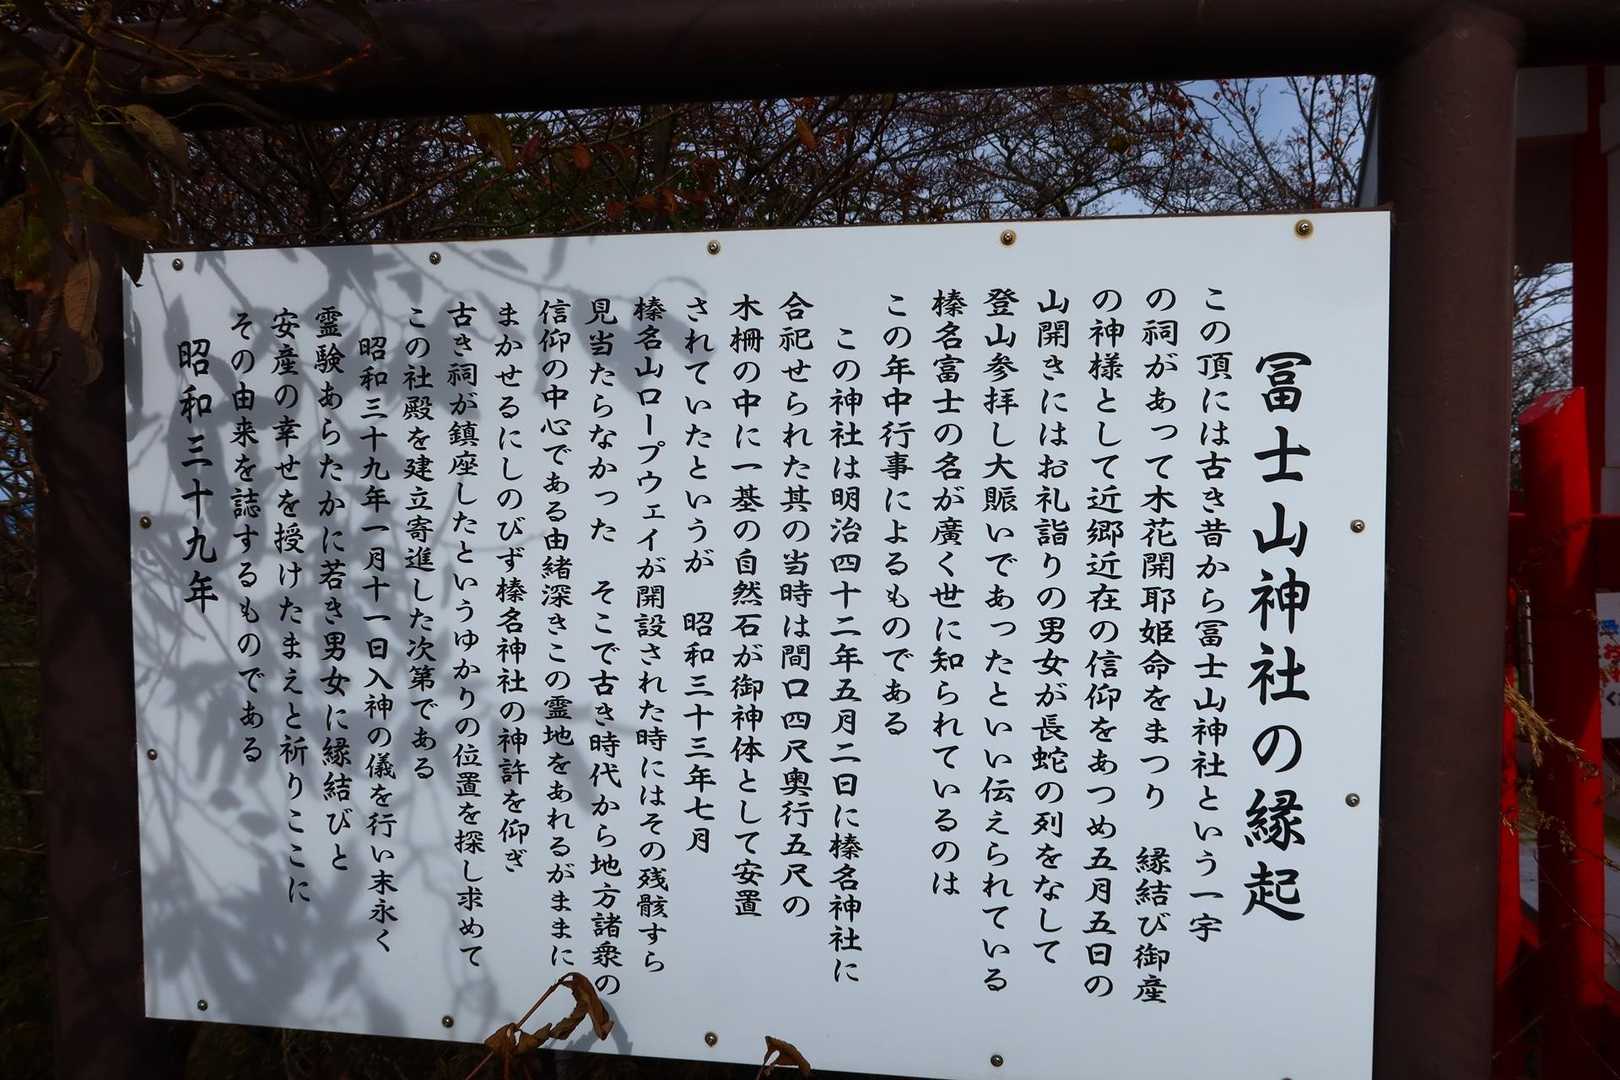 冨士山神社の縁起
この頂には古き昔から冨士山神社という一宇
の祠があって木花開耶姫命をまつり　縁結び御産
の神様として近郷近在の信仰をあつめ五月五日の
山開きにはお礼詣りの男女が長蛇の列をなして
登山参拝し大賑いであったといい伝えられている
榛名富士の名が廣く世に知られているのは
この年中行事によるものである
この神社は明治四十二年五月二日に榛名神社に
合祀せられた其の当時は間口四尺奥行五尺の
木柵の中に一基の自然石が御神体として安置
されていたというが　昭和三十三年七月
榛名山ロープウェイが開設された時にはその残骸すら
見当たらなかった　そこで古き時代から地方諸衆の
信仰の中心である由緒深きこの霊地をあれるがままに
まかせるにしのびず榛名神社の神許を仰ぎ
古き祠が鎮座したというゆかりの位置を探し求めて
この社殿を建立寄進した次第である
昭和三十九年一月十一日入神の儀を行い末永く
霊験あらたかに若き男女に縁結びと
安産の幸せを授けたまえと祈りここに
その由来を誌するものである
昭和三十九年